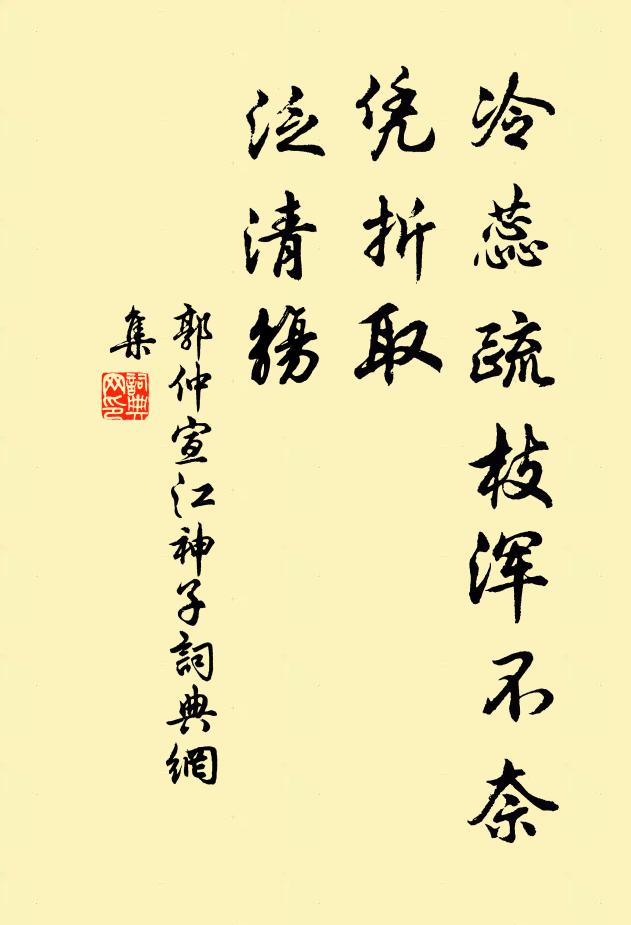 冷蕊疏枝浑不奈
凭折取
泛清觞
郭仲宣江神子詞典網
集
詞典
网印